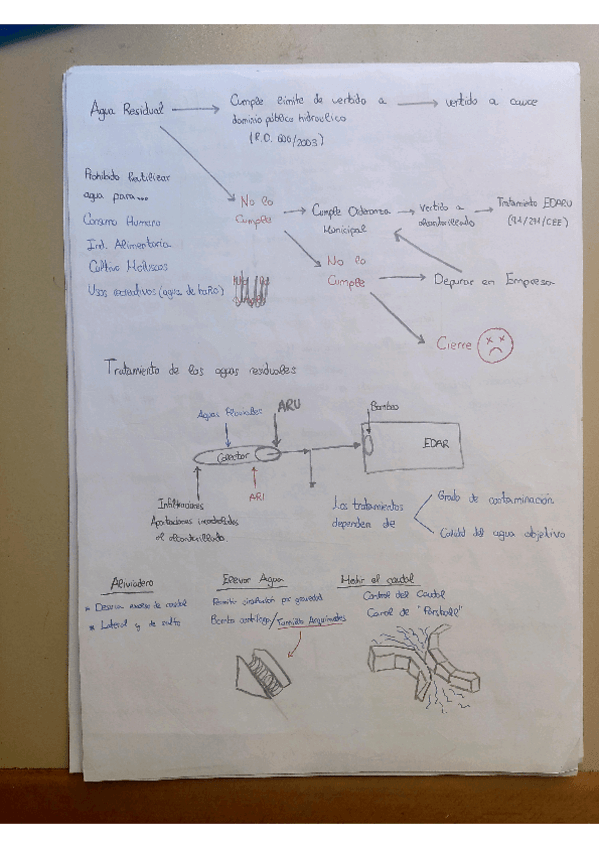 Agua Residual
Cumple límite de vertido a
dominio público hidraulico
(R.D. 606/2003)
vertido a cauce
Prohibido Reutilizar
agua para...
Consumo Humano
Ind. Alimentaria
Cultivo Moluscos
Usos recreativos (agua de baño)
No lo
Cumple
Cumple Ordenanza
Municipal
Vertido a
alcantarillado
Tratamiento EDARU
(91/271/CEE)
No lo
Cumple
Depurar en Empresa
Cierre
Tratamiento de las aguas residuales
Aguas Pluviales
ARU
Bombeo
Colector
EDAR
ARI
Infiltraciones
Aportaciones incontroladas
al alcantarillado.
Los tratamientos
dependen de
Grado de contaminación
Calidad del agua objetivo
Aliviadero
Elevar Agua
Medir el caudal
de caudal
Lateral y de salto
Permitir circulación por gravedad
Bomba centrífuga/Tornillo Arquímedes
Control del Caudal
Canal de "Parshall"